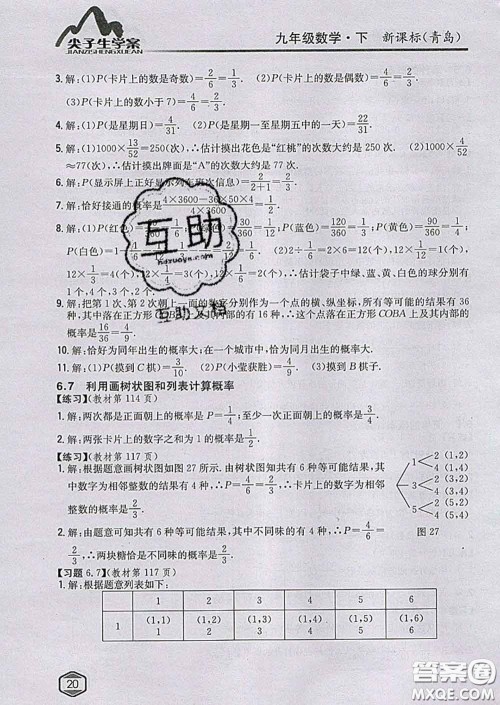 尖子生学案
JIANZISHENGXUEAN
九年级数学·下 新课标(青岛)
3. 解:(1)P(卡片上的数是奇数)=2/6=1/3. (2)P(卡片上的数是偶数)=4/6=2/3.
(3)P(卡片上的数小于7)=6/6=1.
4. 解:(1)P(是星期日)=4/31. (2)P(是星期一至星期五中的一天)=22/31.
5. 解:(1)1000×13/52=250,∴估计摸出花色是“红桃”的次数大约是 250 次. (2)1000×4/52
≈77(次),∴估计摸出牌面是“A”的次数大约是 77 次.
6. 解:P(显示屏上正好显示列车班次信息)=2/(2+1)=2/3.
7. 解:恰好接通的概率是
8. 解:(1)P(红色)= P(蓝色)=120/360=1/3; P(黄色)=90/360=1/4;
P(白色)= (2)12×1/12=1(个), 12×1/3=4(个), 12×1/4=3(个),
12×1/3=4(个),∴估计袋子中绿、蓝、黄、白色的球分别有
1 个,4 个,3 个,4 个.
9. 解:把第 1 次、第 2 次朝上一面的数字分别作为一个点的横、纵坐标,所有等可能的结果有 36
种,其中落在正方形 COBA 上及其内部的有 16 种,∴这个点落在正方形 COBA 上及其内部的
概率是16/36=4/9.
10. 解:恰好为同年出生的概率大、在一个城市中,恰为同月出生的概率大.
11. 解:(1)P(小亮获胜)= (2)P(小莹获胜)=4/9. (3)摸 B 棋子.
6.7 利用画树状图和列表计算概率
【练习】(教材第 114 页)
1. 解:两次都是正面朝上的概率是 P=1/4;至少一次正面朝上的概率是3/4.
2. 解:两张卡片上的数字之和为 1 的概率是2/9.
【练习】(教材第 117 页)
1. 解:根据题意画树状图如图 27 所示. 由树状图可知共有 6 种等可能结果,其
中数字为相邻整数的结果有 4 种,∴P=4/6=2/3,∴卡片上的数字为相邻
整数的概率为2/3.
1 2 (1,2)
4 (1,4)
3 2 (3,2)
4 (3,4)
5 2 (5,2)
4 (5,4)
图 27
2. 解:由题意可知共有 6 种等可能的结果,其中不同味的有 4 种,∴P=4/6=
2/3,∴两块糖恰是不同味的概率是2/3.
【习题 6.7】(教材第 117 页)
1. 解:根据题意列表如下:
1 2 3 4 5 6
1 (1,1) (1,2) (1,3) (1,4) (1,5) (1,6)
20
互助
互助文科
答案圈
MXQE.COM